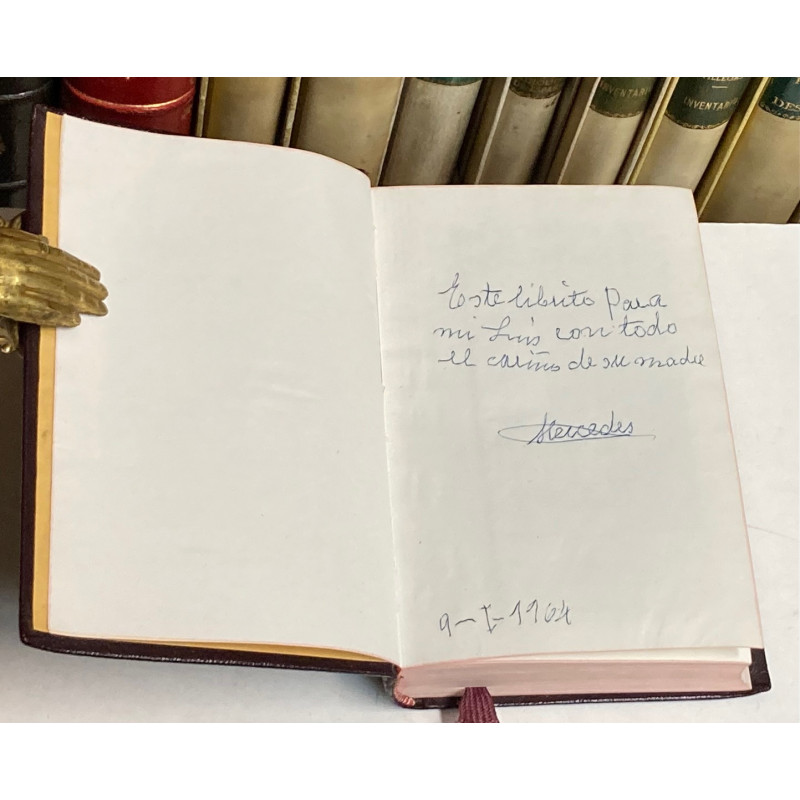 INVENTARIO
INVENTARIO
Este librito para
mi Luis con todo
el cariño de su madre
Mercedes
9-I-1964